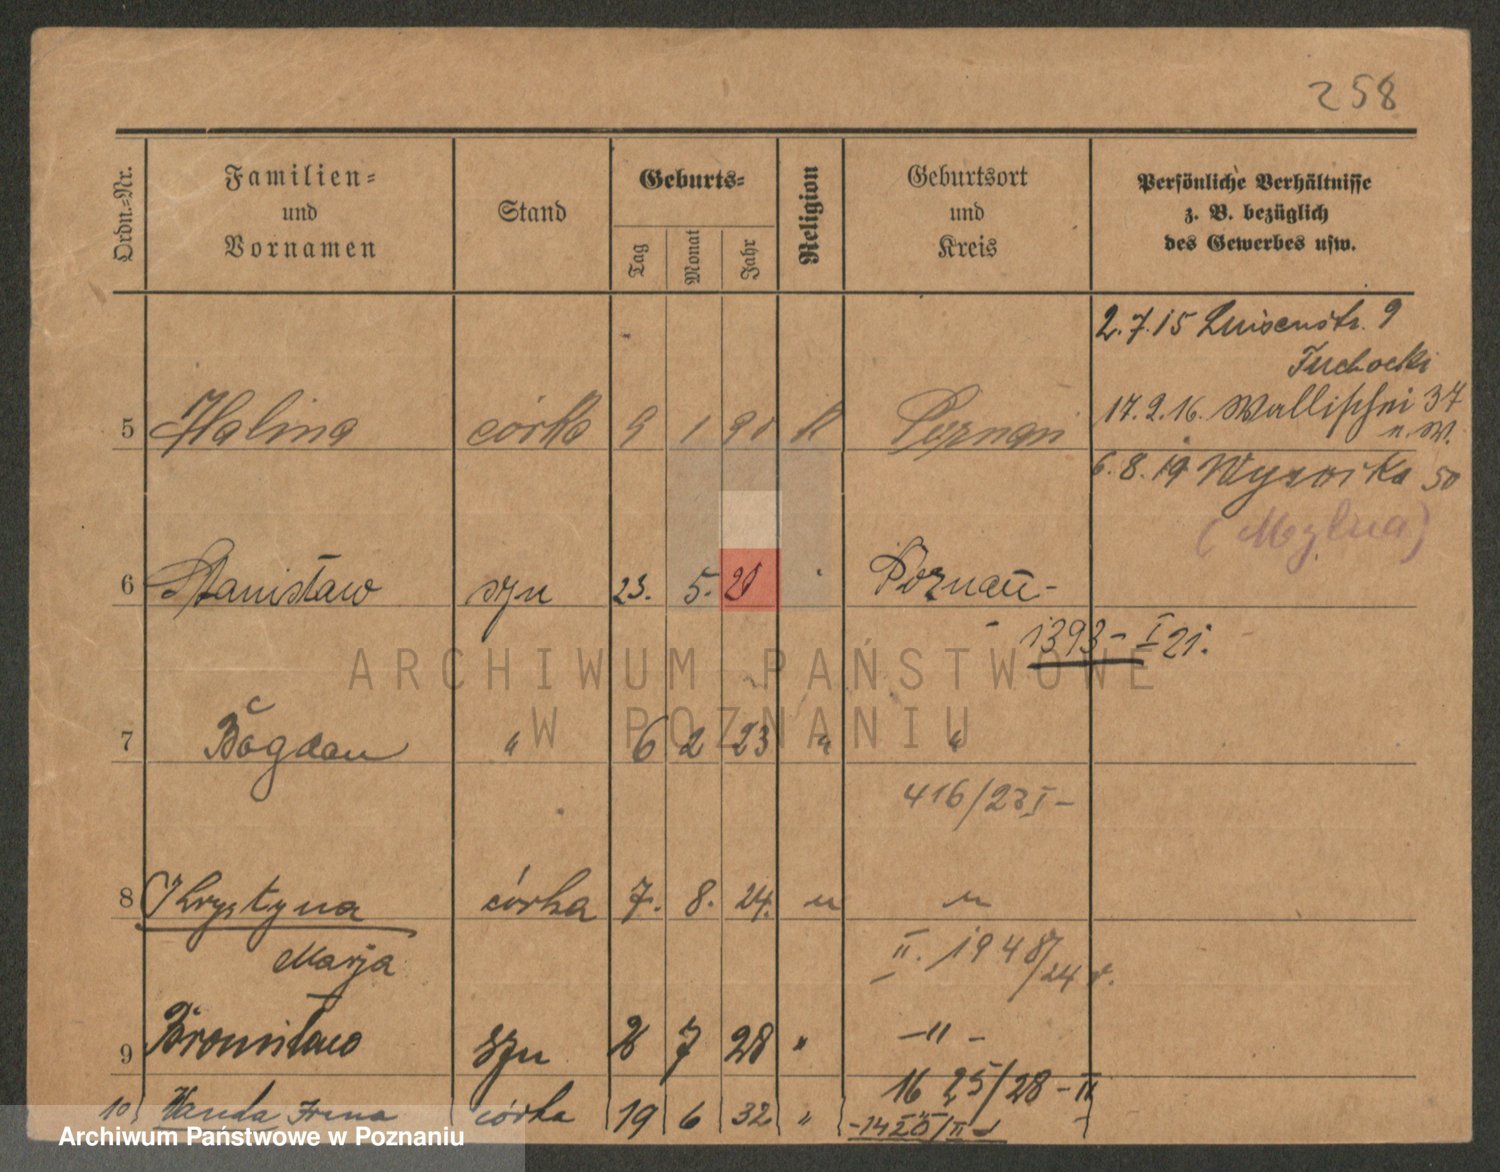 258
Ordn.-Nr.
Familien-
und
Vornamen
Stand
Geburts-
Tag
Monat
Jahr
Religion
Geburtsort
und
Kreis
Persönliche Verhältnisse
z. B. bezüglich
des Gewerbes usw.
2.7.15 Luisenstr. 9
Tuchocki
17.2.16. Wallischei 37
n. W.
5 Halina córka 9 1 20 k Poznań
6.8.19 Wysoika 50
(Mylna)
6 Stanisław syn 23. 5. 20 Poznań -
1393 - I 21.
7 Bogdan " 6 2 23 " "
416/23 I -
8 Krystyna córka 7. 8. 24. " "
Marja
II. 1948/24 r.
9 Bronisław syn 7 28 " -"-
1625/28 - II
10 Wanda Irena córka 19 6 32 "
ARCHIWUM PAŃSTWOWE
W POZNANIU
Archiwum Państwowe w Poznaniu